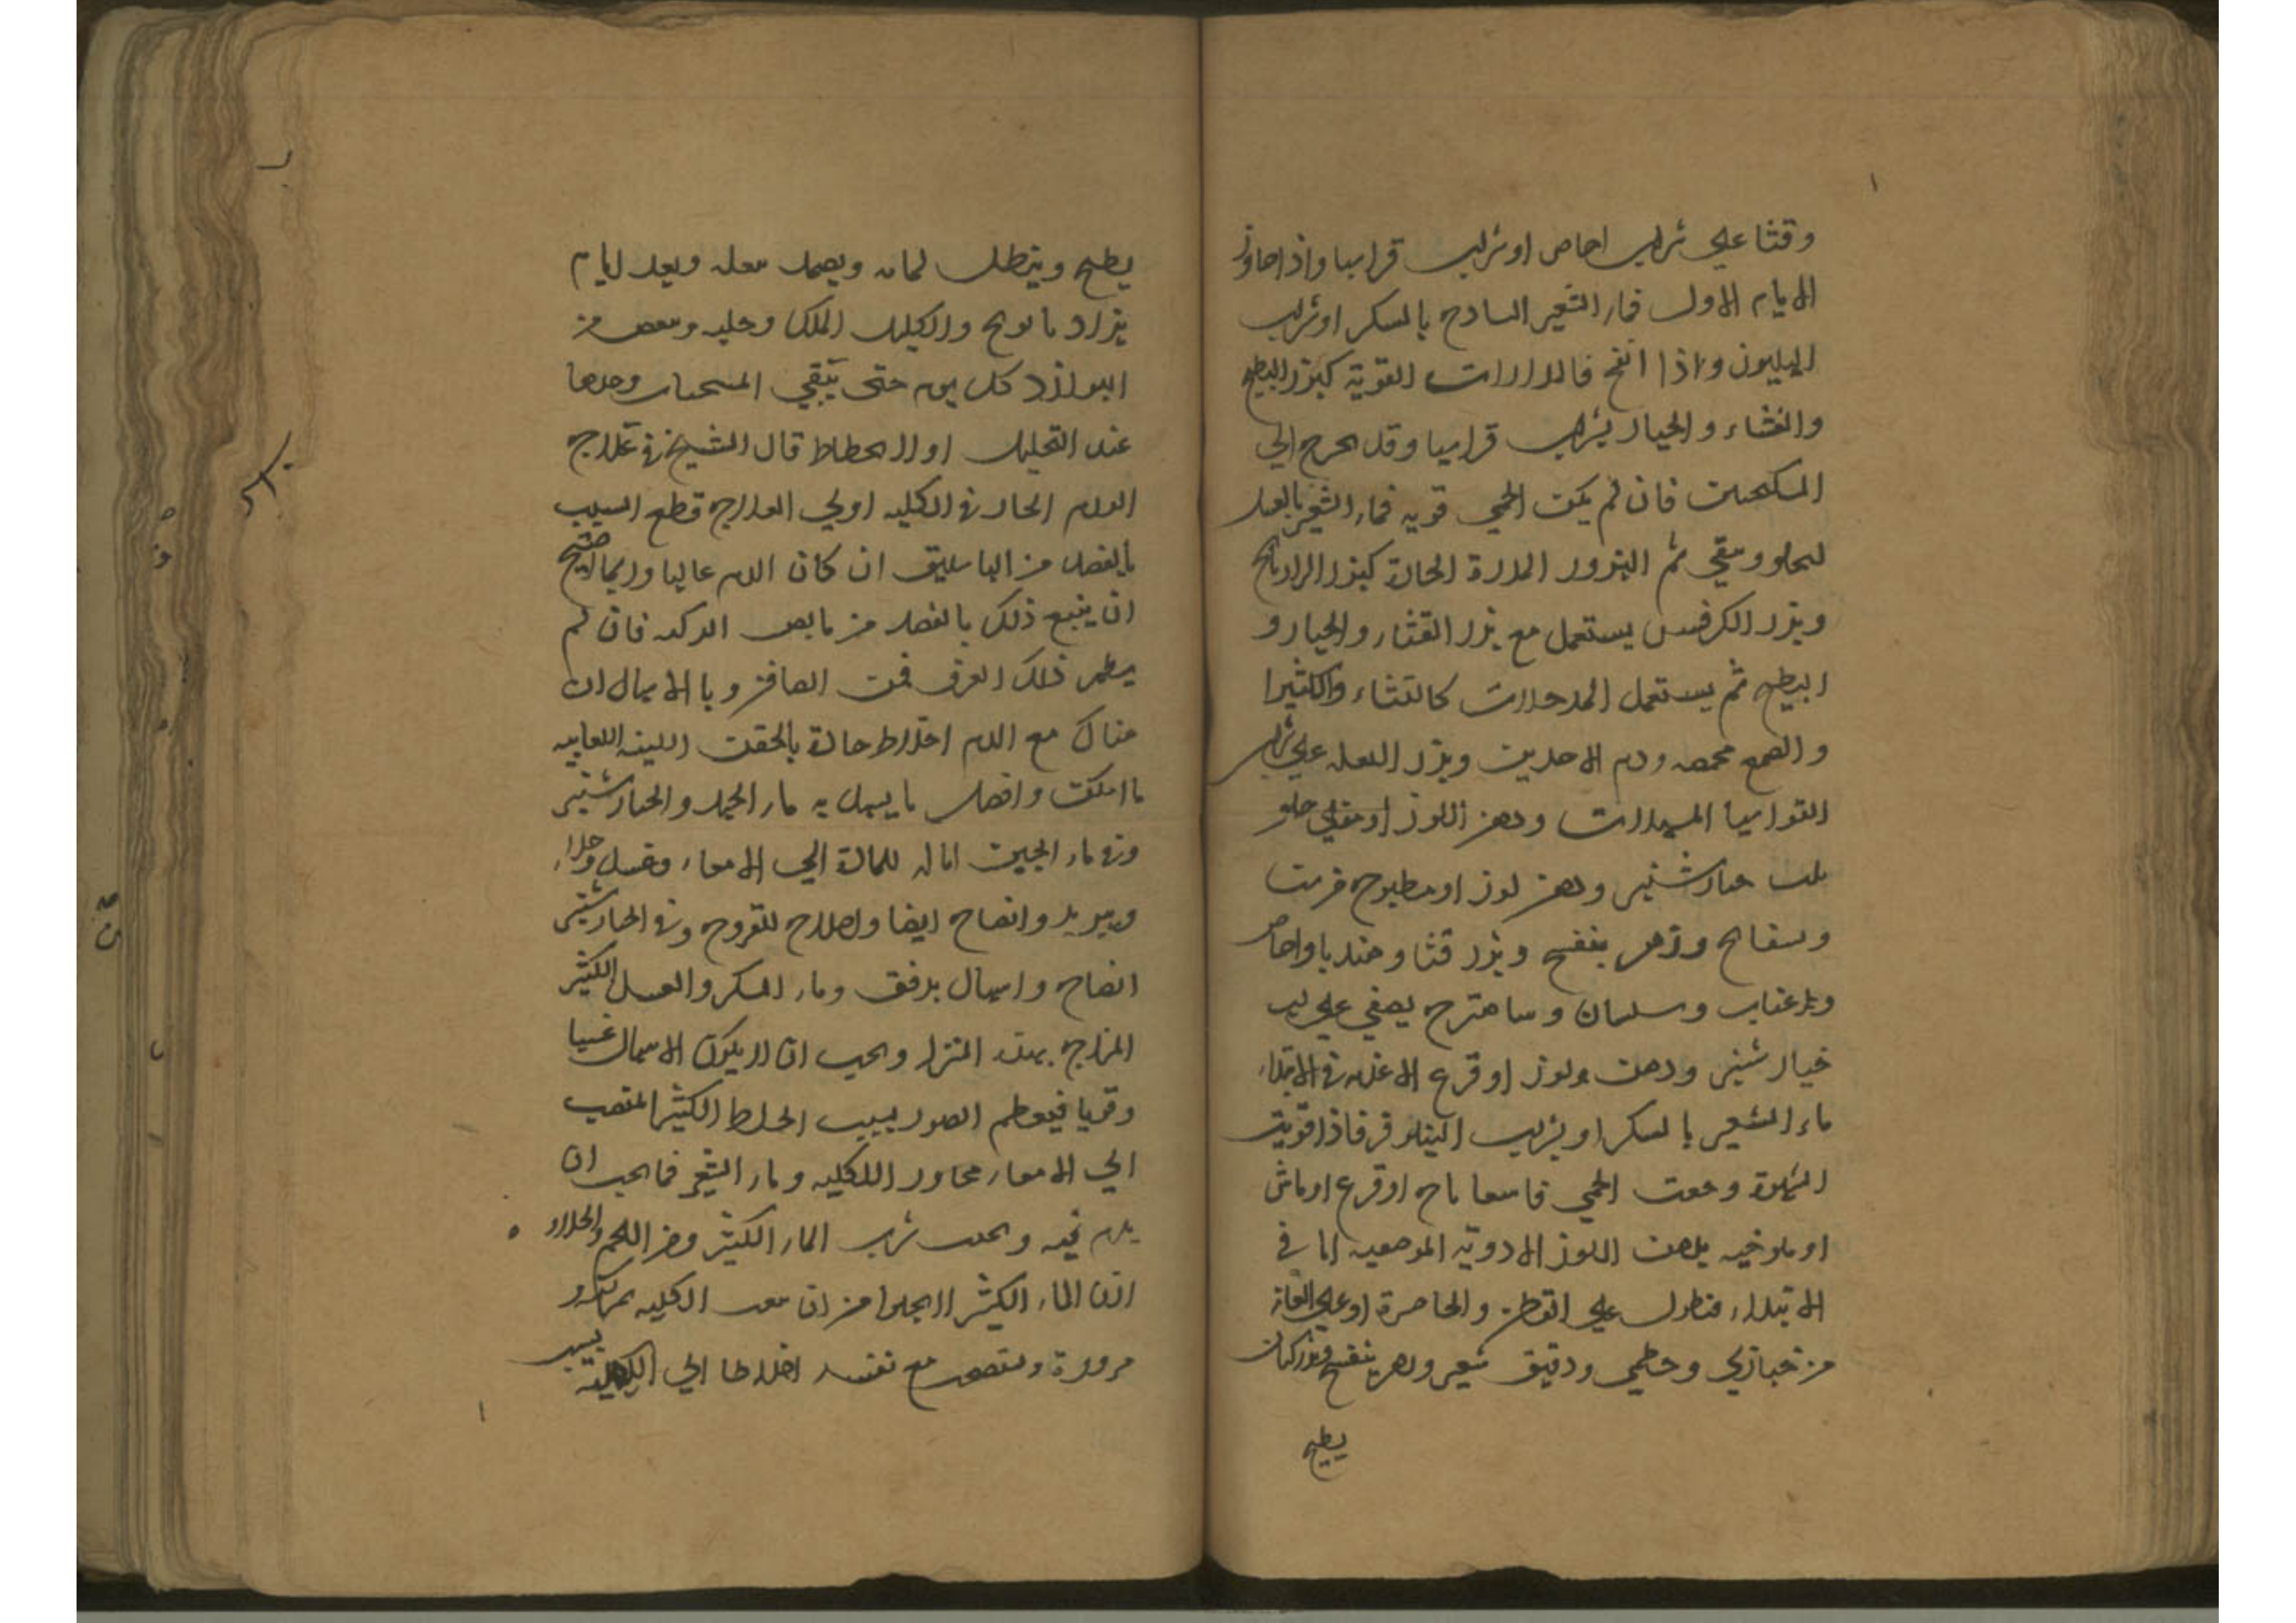 وقثا علي شراب اجاص او شراب قراسيا واذا جاوز
الايام الاول فماء الشعير الساذج بالسكر او شراب
الهليون واذا انفتح فالمدرات القوية كبزر البطيخ
والقثاء والخيار بشراب قراسيا وقد يحوج الي
السكنجبين فان لم يكن الحمي قويه فماء الشعير بالعسل
ليجلو وينقي ثم البزور المدرة الحادة كبزر الرازيانج
وبزر الكرفس يستعمل مع بزر القثاء والخيار و
البطيخ ثم يستعمل المدملات كالنشاء والكثيرا
والصمغ محمصه ودم الاخوين وبزر البقله علي شراب
القراسيا المسهلات ودهن اللوز او مغلي حلو
بلب خيارشنبر ودهن لوز او مطبوخ من
وبسفايج وزهر بنفسج وبزر قثا وهندبا واجاص
وعناب وسبستان وشاهترج يصفي علي لب
خيارشنبر ودهن ولوز او قرع الاغذيه في الابتداء
ماء الشعير بالسكر او بشراب النيلوفر فاذا قويت
الشهوة وخفت الحمي فاسفاناخ او قرع او ماش
او ملوخيه بدهن اللوز الادويه الموضعيه اما في
الابتداء فنطول علي القطن والخاصرة او علي العانة
من خبازي وخطمي ودقيق شعير ودهن بنفسج وبزر كتان
يطبخ
يطبخ وينطل بمائه ويضمد بثفله وبعد ايام
يزاد بابونج واكليل الملك وحلبه وينقص من
البوارد كل يوم حتي يبقي المسخنات وحدها
عند التحليل او الانحطاط قال الشيخ في علاج
الورم الحار في الكليه اولي العلاج قطع السبب
بالفصد من الباسليق ان كان الدم عاليا وربما احتيج
ان يتبع ذلك بالفصد من مابض الركبه فان لم
يظهر ذلك العرق فمن الصافن وبالاسهال ان
هناك مع الدم اخلاط حادة بالحقن اللينه اللعابيه
ما امكن وافضل ما يسهل به ماء الجبن والخيارشنبر
وفي ماء الجبن امالة للمادة الي الامعاء وغسل وجلاء
وتبريد وانضاج ايضا واصلاح للقروح وفي الخيارشنبر
انضاج واسهال برفق وماء السكر والعسل الكثير
المزاج بهذه المنزلة ويجب ان لا يكون الاسهال عنيفا
وقويا فيعظم الضرر بسبب الخلط الكثير المنصب
الي الامعاء مجاور اللكليه وماء الشعير فما يجب ان
يلزم فيه ويجتنب شرب الماء الكثير ومن اللحم والحلاوه
لان الماء الكثير لا يخلوا من ان يتعب الكليه بمروره
مروره ويستصحب مع نفسه اخلاطا الي الكليه
بسبب